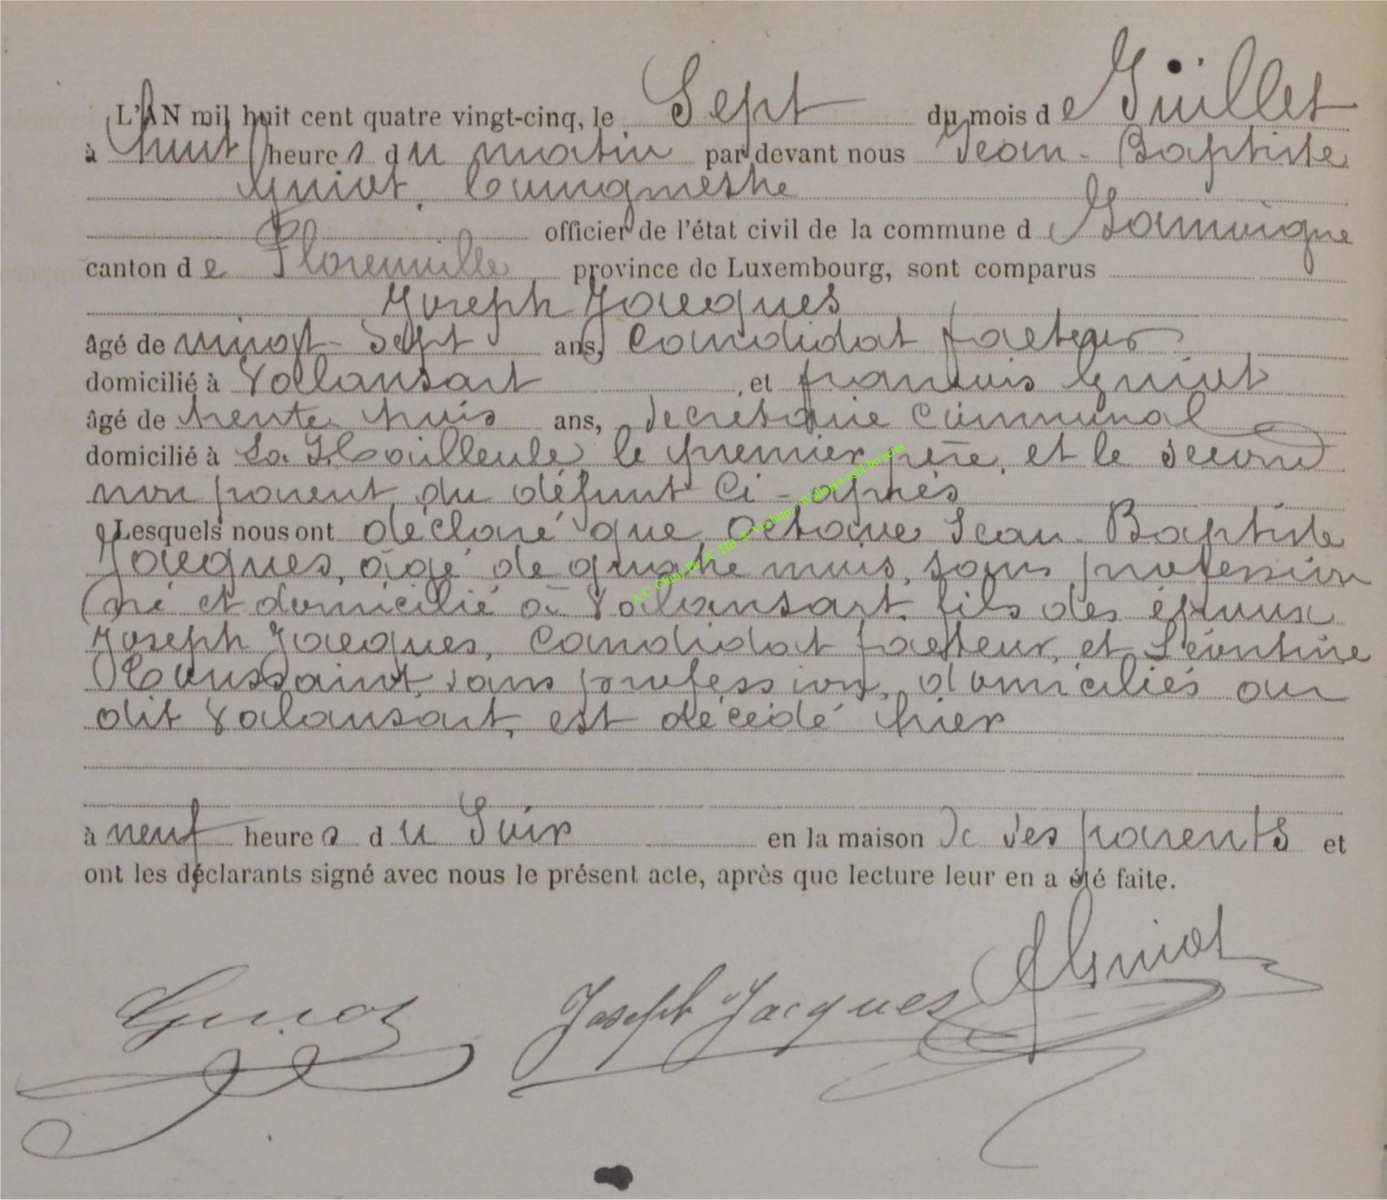 L'AN mil huit cent quatre vingt-cinq, le Sept du mois de Juillet
à huit heures du matin par devant nous Jean-Baptiste
Guiot, bourgmestre
officier de l'état civil de la commune d Jamoigne
canton de Florenville province de Luxembourg, sont comparus
Joseph Jacques
âgé de vingt-sept ans, Candidat facteur
domicilié à Valansart, et françois Guiot
âgé de trente huit ans, Secrétaire Communal
domicilié à La Hailleule le premier père, et le second
non parent du défunt ci-après
Lesquels nous ont déclaré que Octave Jean-Baptiste
Jacques, âgé de quatre mois, sans profession
né et domicilié à Valansart, fils des époux
Joseph Jacques, Candidat facteur, et Léontine
Toussaint, sans profession, domiciliés au
dit Valansart, est décédé hier
à neuf heures du Soir en la maison de ses parents et
ont les déclarants signé avec nous le présent acte, après que lecture leur en a été faite.
Guiot Joseph Jacques Guiot